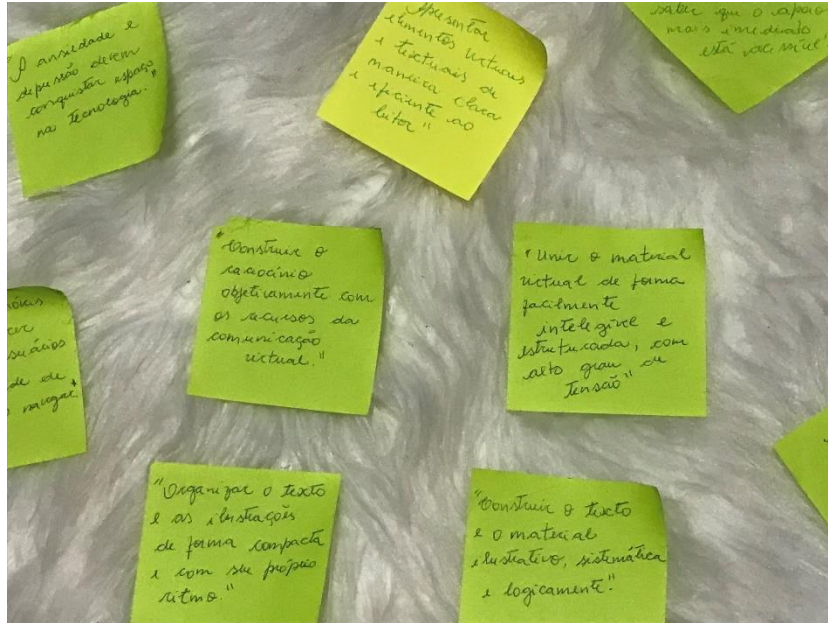 "A ansiedade e
depressão devem
conquistar espaço
na tecnologia."
"Apresentar
elementos virtuais
e textuais de
maneira clara
e eficiente ao
leitor"
saber que o apoio
mais imediato
está acessível"
"Construir o
raciocínio
objetivamente com
os recursos da
comunicação
virtual."
"Unir o material
virtual de forma
facilmente
intelegível e
estruturada, com
alto grau de
Tensão"
suários
de de
navegar"
"Organizar o texto
e as ilustrações
de forma compacta
e com seu próprio
ritmo."
"Construir o texto
e o material
ilustrativo, sistemática
e logicamente."